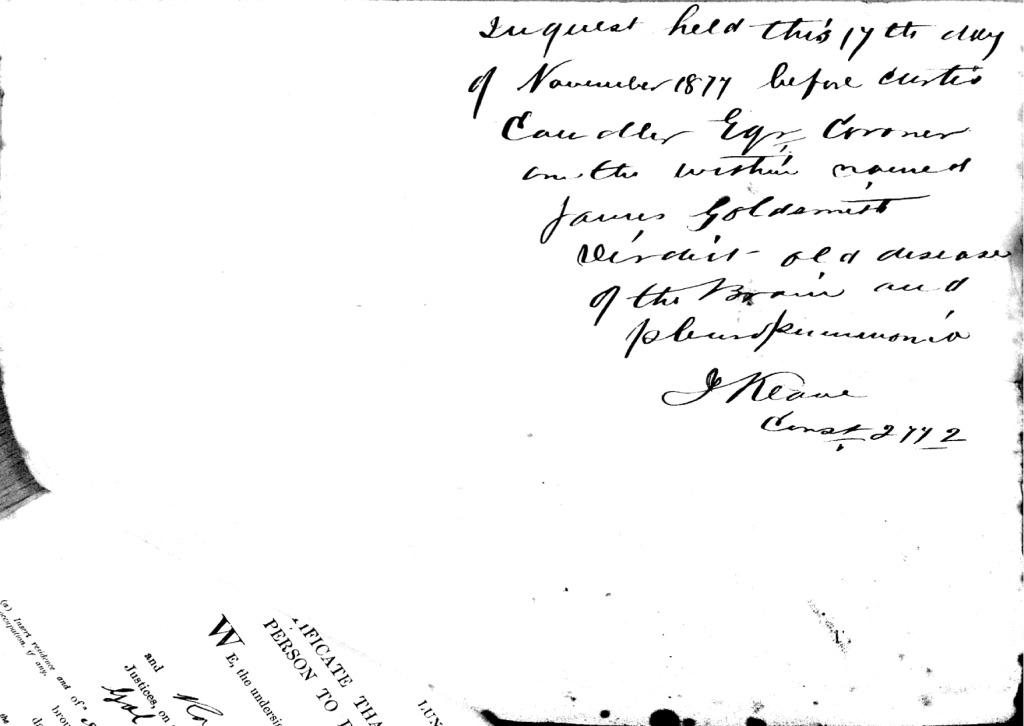 Inquest held this 17th day
of November 1877 before Curtis
Candler Eqr Coroner
on the within named
James Goldsmith
Verdict - old disease
of the Brain and
pleuro pneumonia
J Keane
Const 2772
IFICATE THA
PERSON TO
LUN
WE, the undersi
and
Justices, on
Gol
(a) Insert residence and
occupation, if any.
of